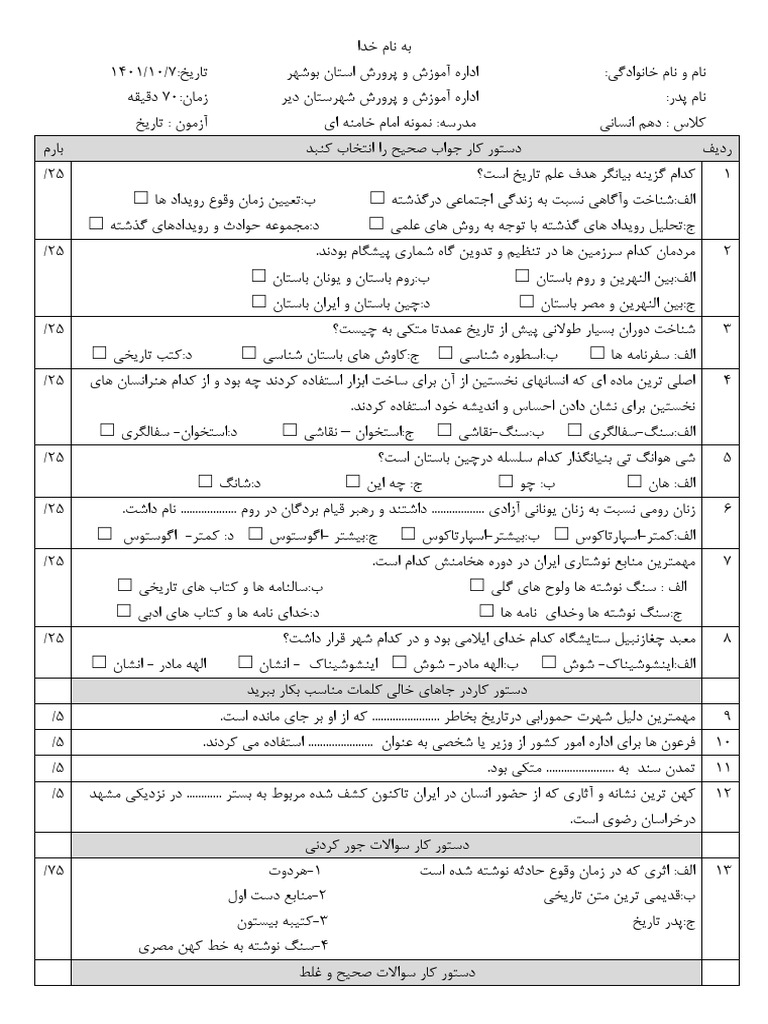 به نام خدا
نام و نام خانوادگی: اداره آموزش و پرورش استان بوشهر تاریخ:۱۴۰۱/۱۰/۷
نام پدر: اداره آموزش و پرورش شهرستان دیر زمان:۷۰ دقیقه
کلاس : دهم انسانی مدرسه: نمونه امام خامنه ای آزمون : تاریخ
ردیف دستور کار جواب صحیح را انتخاب کنید بارم
۱ کدام گزینه بیانگر هدف علم تاریخ است؟ ۲۵/
الف:شناخت وآگاهی نسبت به زندگی اجتماعی درگذشته □ ب:تعیین زمان وقوع رویداد ها □
ج:تحلیل رویداد های گذشته با توجه به روش های علمی □ د:مجموعه حوادث و رویدادهای گذشته □
۲ مردمان کدام سرزمین ها در تنظیم و تدوین گاه شماری پیشگام بودند. ۲۵/
الف:بین النهرین و روم باستان □ ب:روم باستان و یونان باستان □
ج:بین النهرین و مصر باستان □ د:چین باستان و ایران باستان □
۳ شناخت دوران بسیار طولانی پیش از تاریخ عمدتا متکی به چیست؟ ۲۵/
الف: سفرنامه ها □ ب:اسطوره شناسی □ ج:کاوش های باستان شناسی □ د:کتب تاریخی □
۴ اصلی ترین ماده ای که انسانهای نخستین از آن برای ساخت ابزار استفاده کردند چه بود و از کدام هنرانسان های ۲۵/
نخستین برای نشان دادن احساس و اندیشه خود استفاده کردند.
الف:سنگ-سفالگری □ ب:سنگ-نقاشی □ ج:استخوان – نقاشی □ د:استخوان- سفالگری □
۵ شی هوانگ تی بنیانگذار کدام سلسله درچین باستان است؟ ۲۵/
الف: هان □ ب: چو □ ج: چه این □ د:شانگ □
۶ زنان رومی نسبت به زنان یونانی آزادی ................. داشتند و رهبر قیام بردگان در روم .................. نام داشت. ۲۵/
الف:کمتر-اسپارتاکوس □ ب:بیشتر-اسپارتاکوس □ ج:بیشتر -اگوستوس □ د: کمتر- اگوستوس □
۷ مهمترین منابع نوشتاری ایران در دوره هخامنش کدام است. ۲۵/
الف : سنگ نوشته ها ولوح های گلی □ ب:سالنامه ها و کتاب های تاریخی □
ج:سنگ نوشته ها وخدای نامه ها □ د:خدای نامه ها و کتاب های ادبی □
۸ معبد چغازنبیل ستایشگاه کدام خدای ایلامی بود و در کدام شهر قرار داشت؟ ۲۵/
الف:اینشوشیناک- شوش □ ب:الهه مادر- شوش □ اینشوشیناک - انشان □ الهه مادر - انشان □
دستور کاردر جاهای خالی کلمات مناسب بکار ببرید
۹ مهمترین دلیل شهرت حمورابی درتاریخ بخاطر ....................... که از او بر جای مانده است. ۵/
۱۰ فرعون ها برای اداره امور کشور از وزیر یا شخصی به عنوان ...................... استفاده می کردند. ۵/
۱۱ تمدن سند به ....................... متکی بود. ۵/
۱۲ کهن ترین نشانه و آثاری که از حضور انسان در ایران تاکنون کشف شده مربوط به بستر ............ در نزدیکی مشهد ۵/
درخراسان رضوی است.
دستور کار سوالات جور کردنی
۱۳ الف: اثری که در زمان وقوع حادثه نوشته شده است ۱-هردوت ۷۵/
ب:قدیمی ترین متن تاریخی ۲-منابع دست اول
ج:پدر تاریخ ۳-کتیبه بیستون
۴-سنگ نوشته به خط کهن مصری
دستور کار سوالات صحیح و غلط